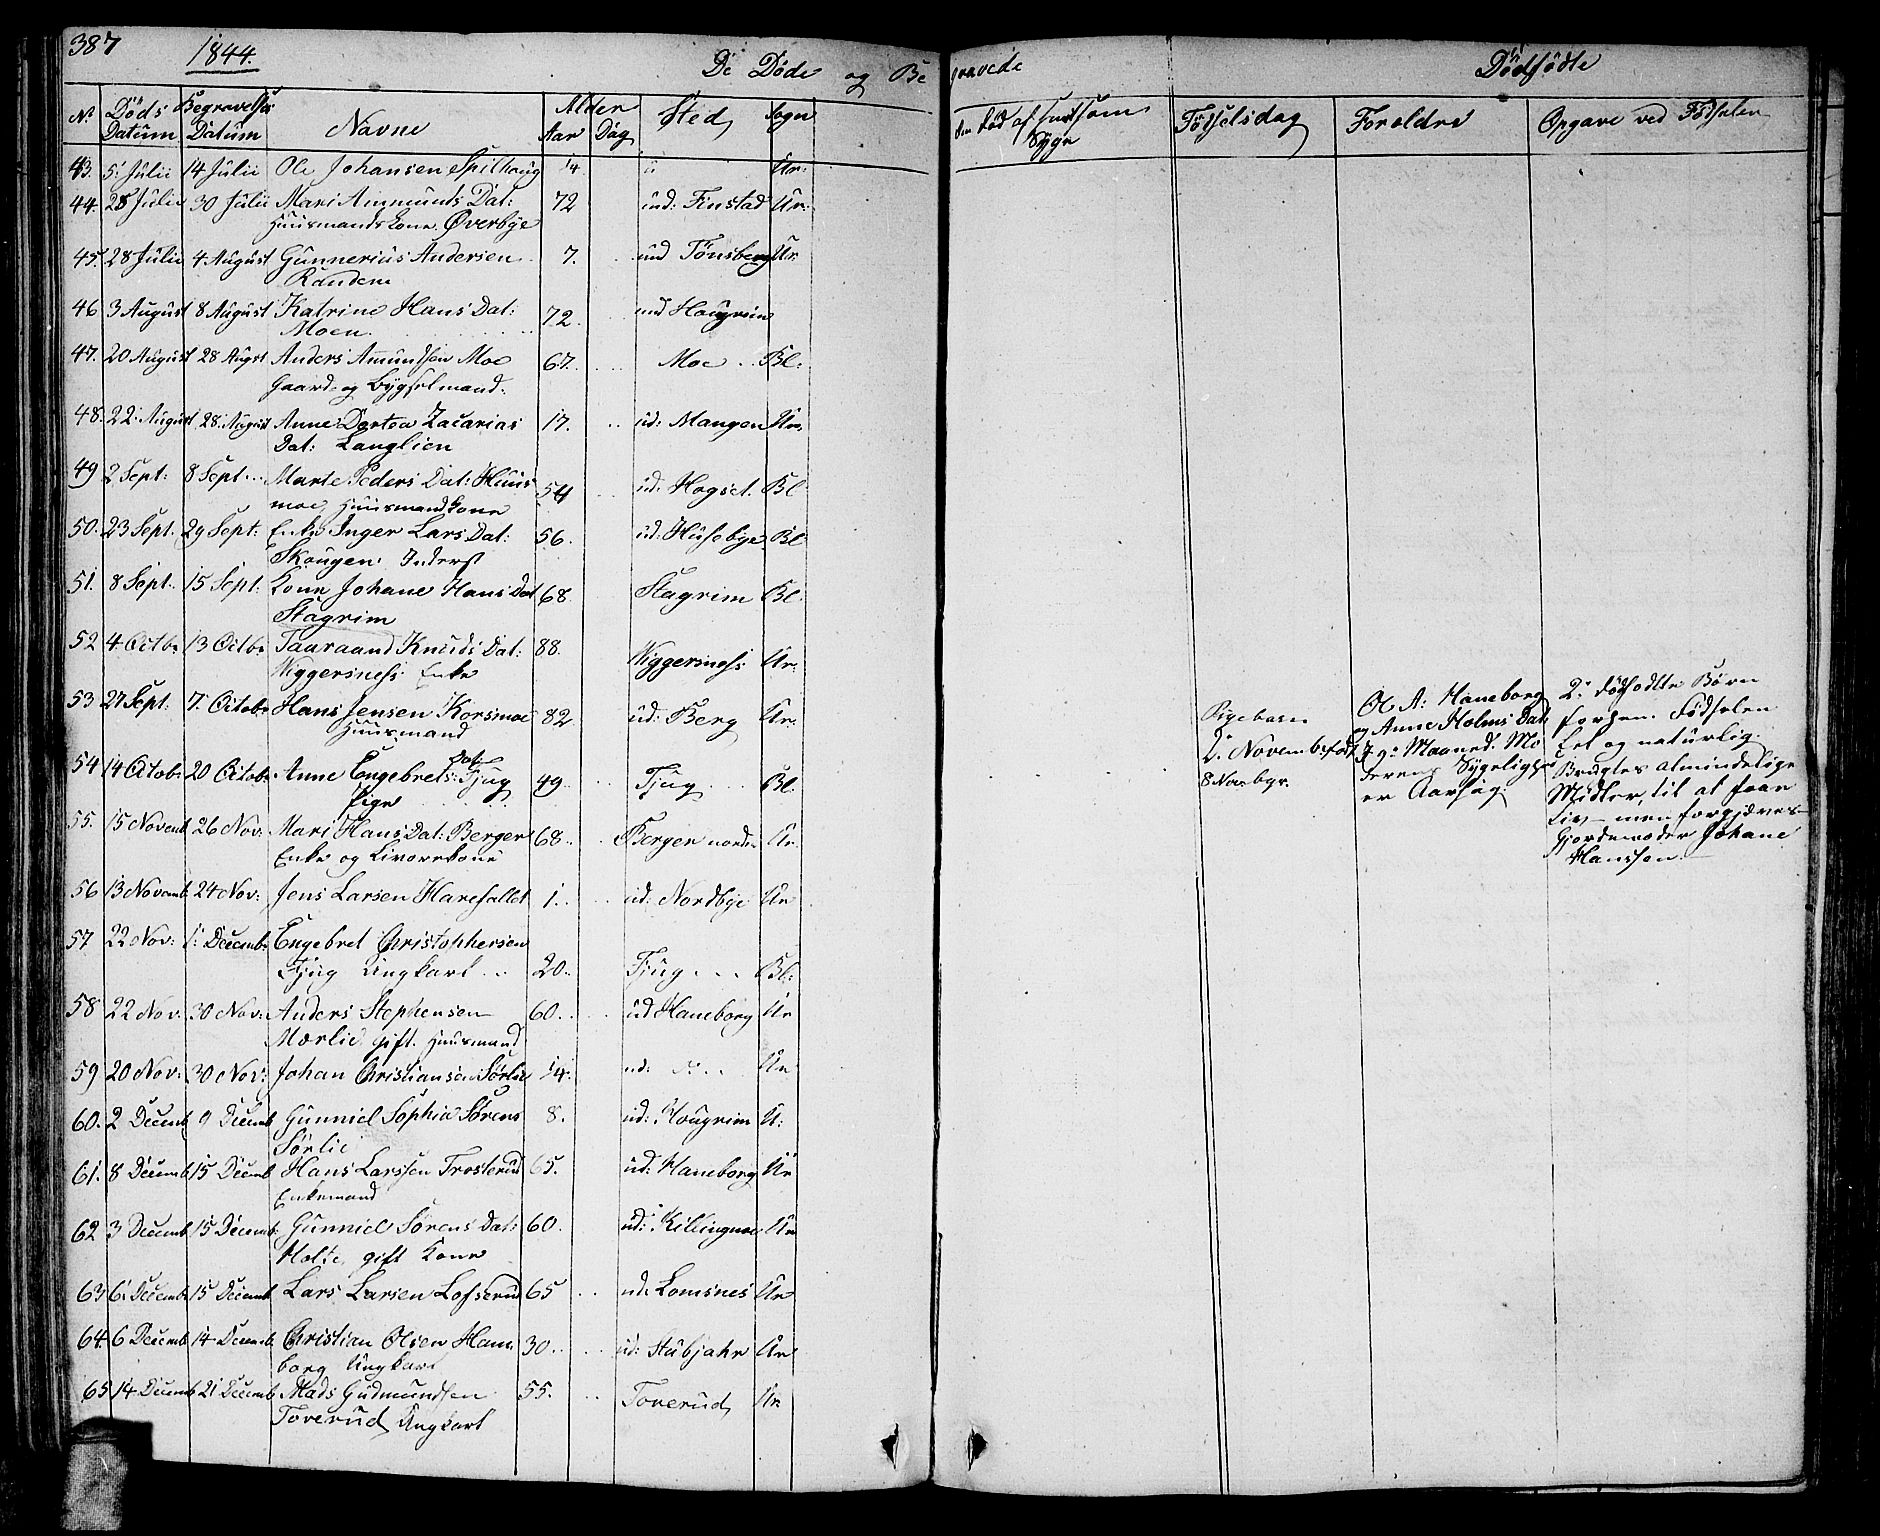 387 1844. De Døde og Be
gravede Dødfødte
No Døds Datum Begravelses Datum Navne Alder Aar Dag Sted Sogn
Død af hvilken Syge Fødselsdag Forældre Opgave ved Fødselen
43. 5 Julii 14 Julii Ole Johansen Spilhaug 14. Ur:
44. 28 Julii 30 Julii Mari Ammunds Dat: 72 und: Finstad Ur:
Huusmandskone Øverbye
45. 28 Julii 4 August Gunnerius Andersen 7. und Tønsberg Ur.
Randem
46 3 August 8 August Katrine Hans Dat: 72. und Hougrim
Moen.
47. 20 August 28 Augst Anders Amundsen Moe 67. Moe Bl:
Gaard og Bygselmand.
48. 22. August 28. August Anne Dortea Zacarias 17. ud: Mangen Ur.
Dat: Langlien
49 2 Sept: 8 Sept Marte Peders Dat: Huus 54 ud: Hogset. Bl
moe, Huusmandkone
50. 23 Sept. 29 Sept: Enke Inger Lars Dat: 56. ud: Husebye Bl
Skougen. Inderst
51. 8 Sept. 15 Sept: Kone Johane Hans Dat 68 Stagrim Bl.
Stagrim
52 4 Octbr 13 Octbr Taaraand Knuds Dat: 88. Wiggersness Ur:
Wiggersness. Enke
53 27 Sept. 7. Octobr Hans Jensen Korsmoe 82 ud: Berg Ur:
Huusmand
54 14 Octob: 20 Octobr Anne Engebrets: Dat Tjug 49. Tjug Bl.
Pige
55. 15 Novemb 26 Nov: Mari Hans Dat: Bergen 68. Bergen nordre Ur.
Enke og Livørekone
56 13 Novemb. 24 Nov: Jens Larsen Harefallet 1. ud: Nordbye Ur
57 22 Nov: 1. Decemb: Engebret Christophersen
Tjug Ungkarl 20. Tjug Bl:
58 22 Nov: 30 Nov: Anders Stephensen 60. ud Haneborg Ur
Mærlie, gift. Huusmand
59 20 Nov: 30 Nov: Johan Christiansen Sørlie 14. ud: Ur
60. 2 Decemb 9 Decemb Gunniel Sophia Sørens 8. ud: Hougrim U:
Sørlie
61. 8 Decemb. 15 Decemb Hans Larssen Trosterud 65. ud: Haneborg Ur
Enkemand
62 3 Decemb 15 Decemb: Gunniel Sørens Dat: 60. ud: Killingmoe Ur
Holte, gift Kone
63 6 Decemb. 15 Decemb Lars Larsen Lofserud 65 ud. Lomsnes Ur
64. 6 Decemb 14 Decemb. Christian Olsen Hane 30. ud: Stubjahr Ur
borg Ungkarl
65 14 Decemb 21 Decemb Mads Gudmundsen 55. Toverud Ur
Toverud, Ungkarl
Pigebarn
2. Novem. bfødt
8 Nov. bgr.
Ol A: Haneborg
og Anne Holms Dat.
I 9. Maaned. Mo
derens Sygelighed
er Aarsag.
2. dødfødte Børn
forhen. Fødselen
let og naturlig.
Brugtes almindelige
Midler, til at faae
Liv – men forgjæves
Gjordemoder Johane
Hanssen.